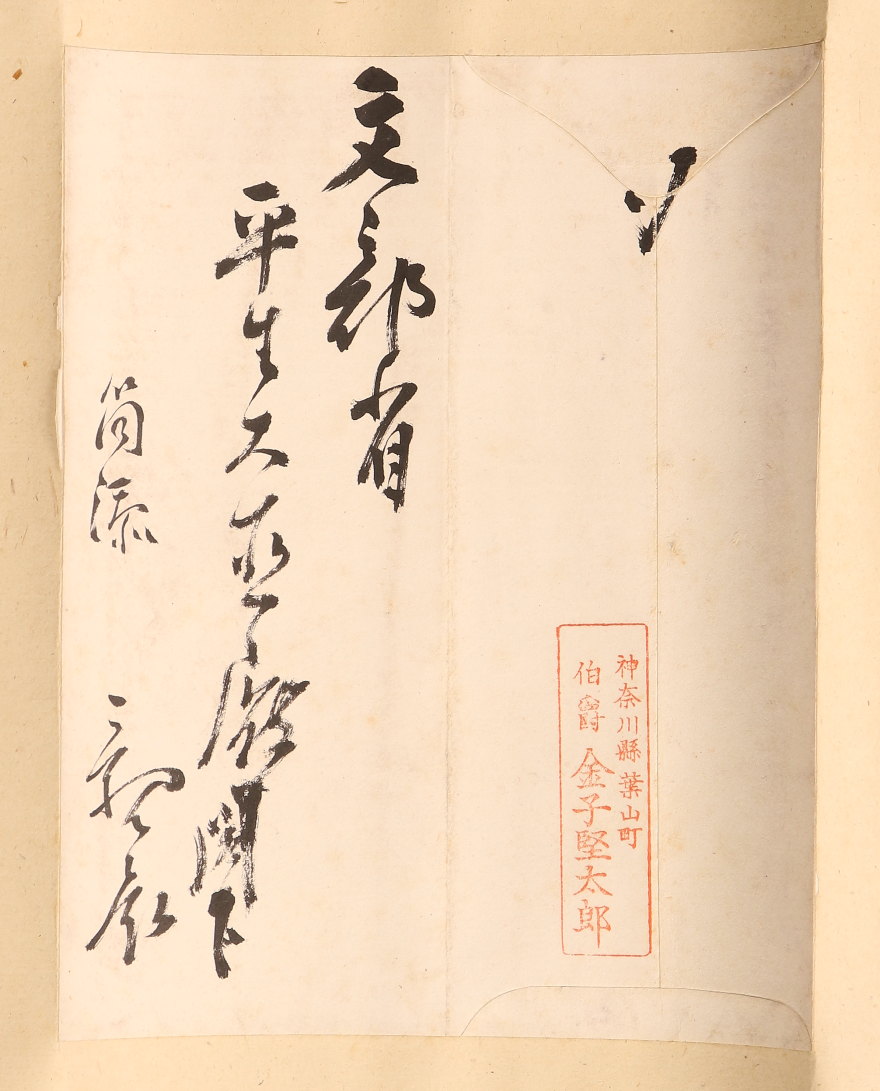 〆
神奈川縣葉山町
伯爵 金子堅太郎
文部省
平生大臣殿閣下
親展